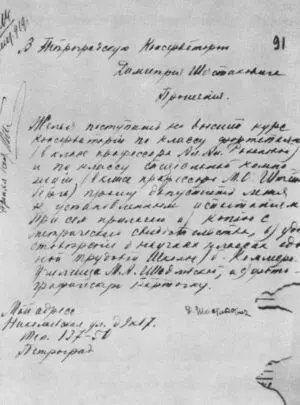 91
В Петроградскую Консерваторию
Димитрия Шостаковича
Прошение.
Желая поступить на высший курс
консерватории по классу фортепиано
(в класс профессора
и по классу специальной компо
зиции (в класс профессора М.О. Штейн
берга) прошу допустить меня
к установленным испытаниям
При сем прилагаю а) копию с
метрического свидетельства, б) удо
стоверение о научных классах
трудовой Школы (б. Коммерч.
Училища М.А. Шидловской, фото
графическую карточку.
Д. Шостакович
Мой адрес
Николаевская ул. д 9 кв 7.
Тел. 137-50
Петроград